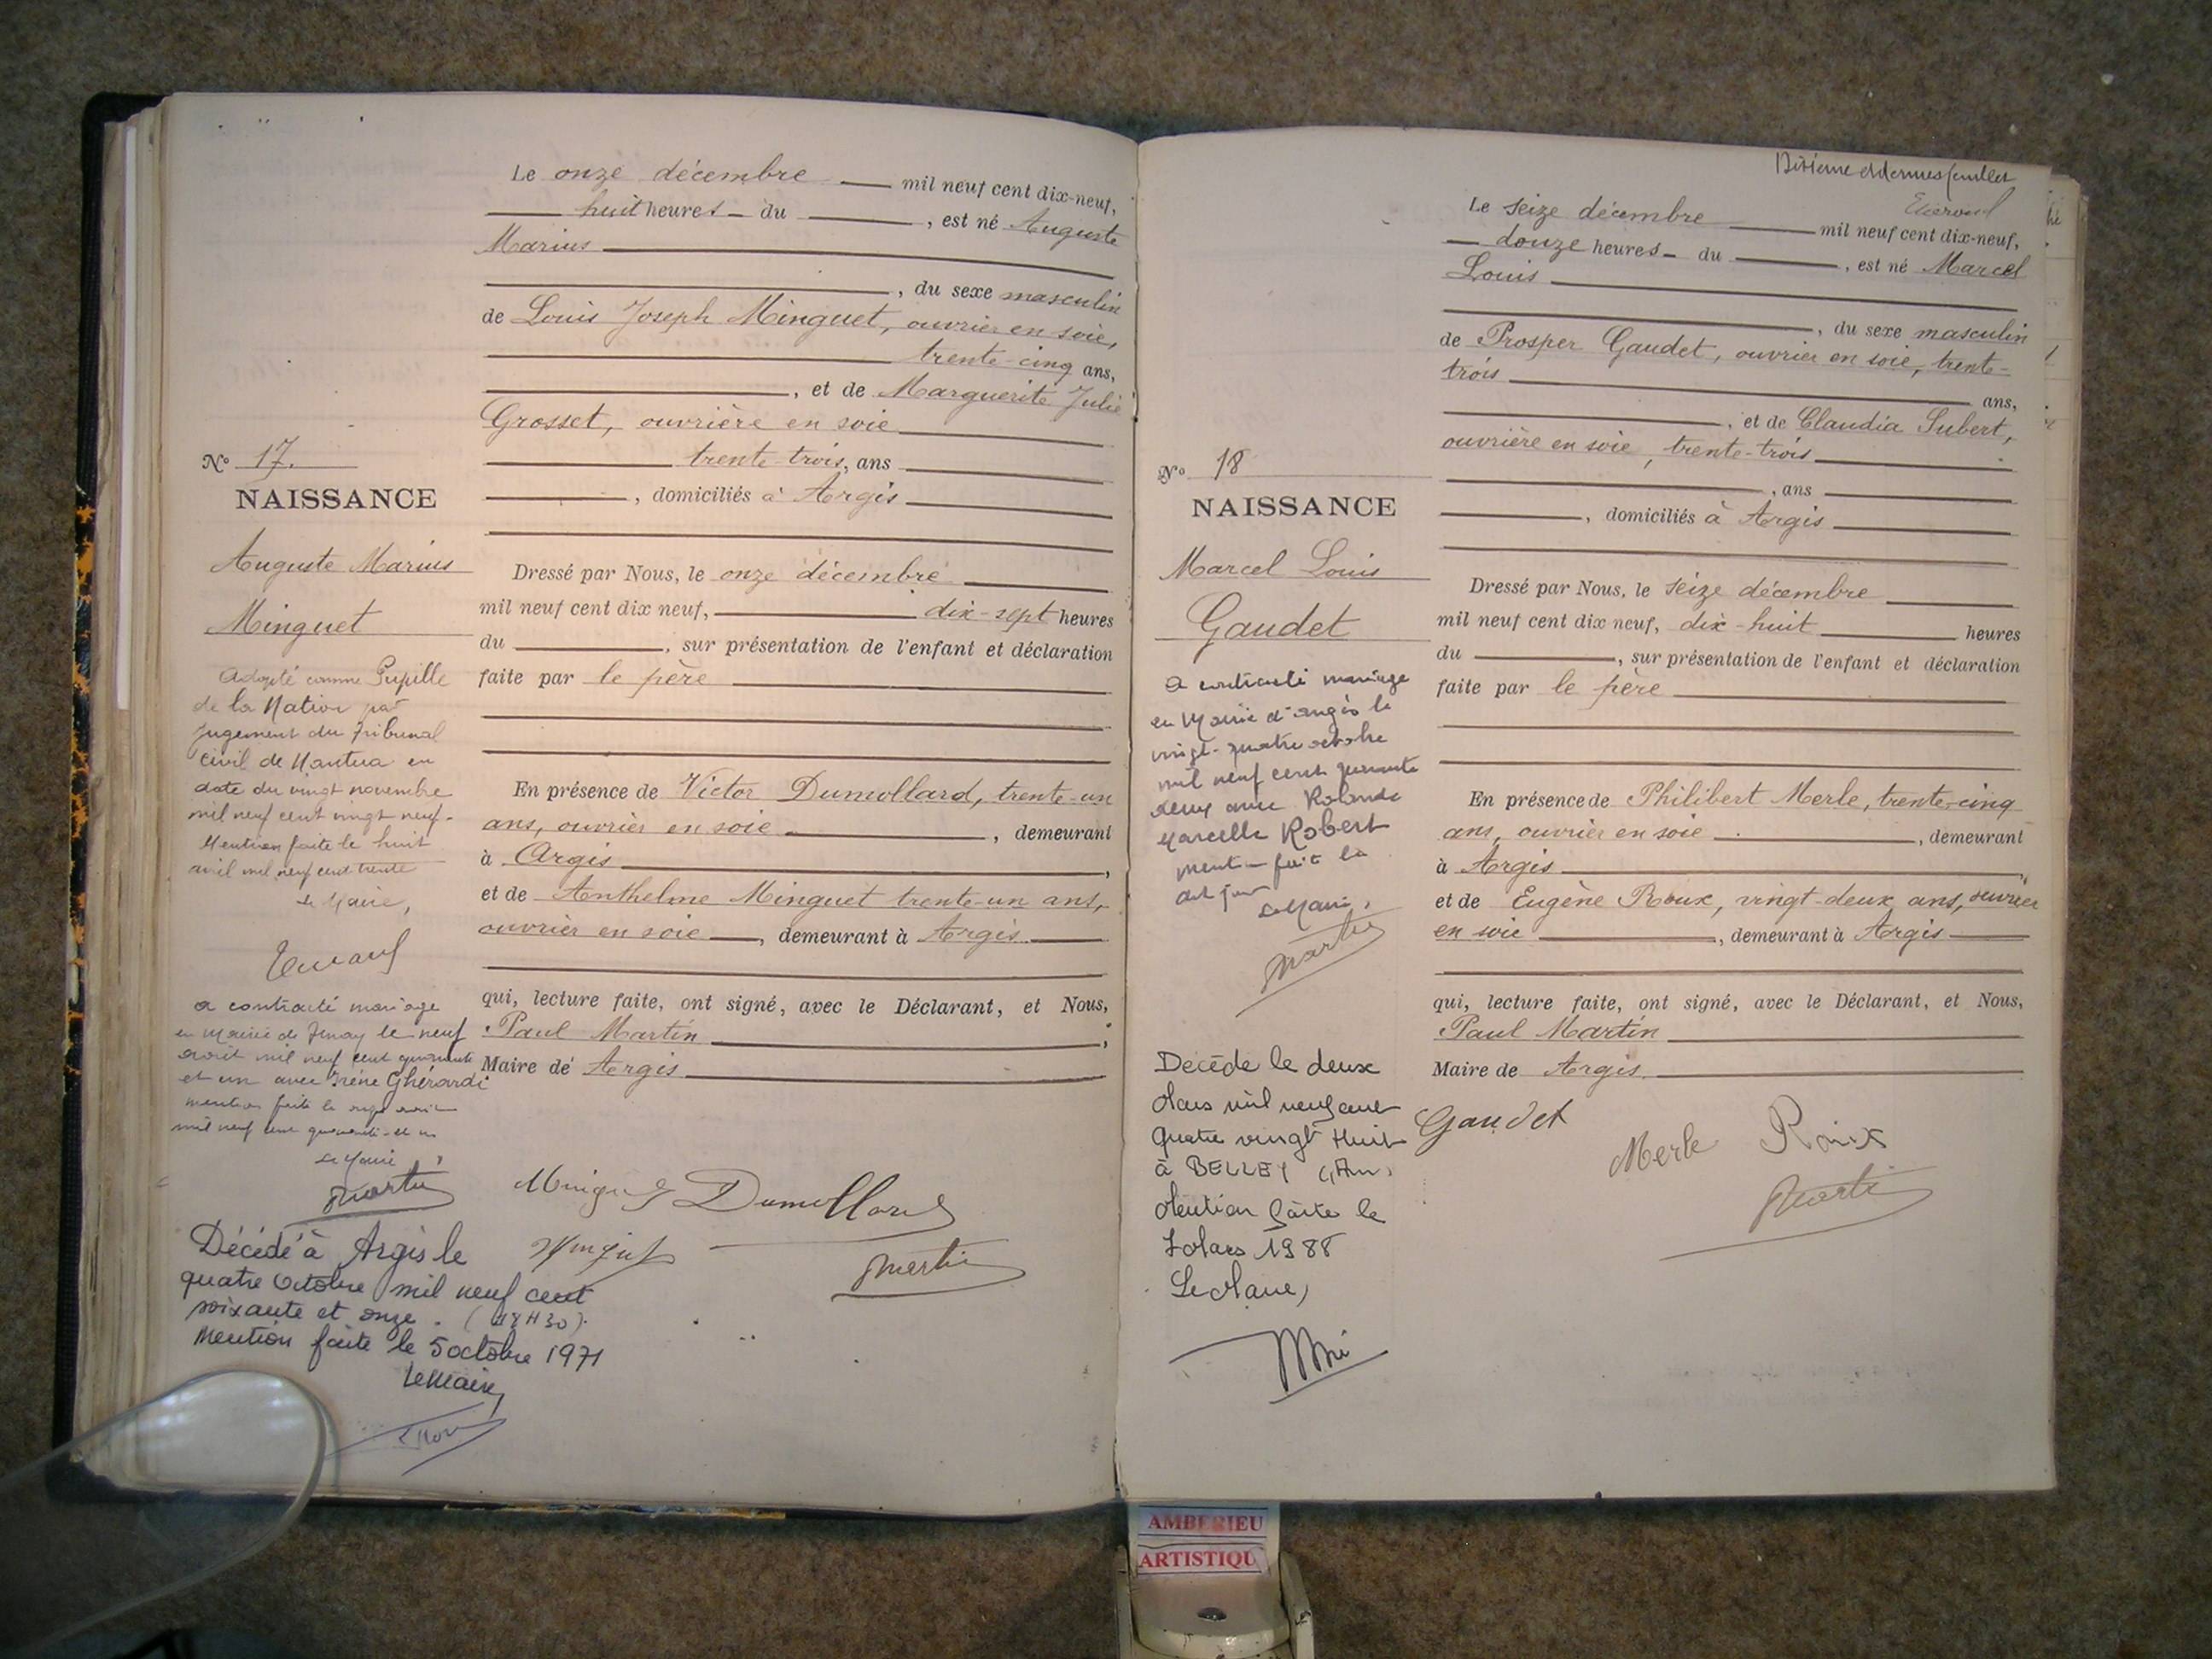 Le onze décembre mil neuf cent dix-neuf,
huit heures du , est né Auguste
Marius
, du sexe masculin
de Louis Joseph Minguet, ouvrier en soie,
trente-cinq ans,
, et de Marguerite Julie
Grosset, ouvrière en soie
trente-trois, ans
, domiciliés à Argis
Dressé par Nous, le onze décembre
mil neuf cent dix neuf, dix-sept heures
du , sur présentation de l'enfant et déclaration
faite par le père
En présence de Victor Dumollard, trente-un
ans, ouvrier en soie , demeurant
à Argis ,
et de Anthelme Minguet trente-un ans,
ouvrier en soie , demeurant à Argis
qui, lecture faite, ont signé, avec le Déclarant, et Nous,
Paul Martin ,
Maire de Argis
Dumollard
Martin
No 17.
NAISSANCE
Auguste Marius
Minguet
Adopté comme Pupille
de la Nation par
jugement du Tribunal
civil de Nantua en
date du vingt novembre
mil neuf cent vingt neuf.
Mention faite le huit
avril mil neuf cent trente
Le Maire,
a contracté mariage
en Mairie de Tenay le neuf
août mil neuf cent quarante
et un avec Irène Ghérardi
mention faite le onze août
mil neuf cent quarante-et un
Le Maire,
Martin
Décédé à Argis le
quatre Octobre mil neuf cent
soixante et onze. (18H30).
Mention faite le 5 octobre 1971
Le Maire,
feuillet
Le seize décembre mil neuf cent dix-neuf,
douze heures du , est né Marcel
Louis
, du sexe masculin
de Prosper Gaudet, ouvrier en soie, trente-
trois ans,
, et de Claudia Subert,
ouvrière en soie, trente-trois
, ans
, domiciliés à Argis
Dressé par Nous, le seize décembre
mil neuf cent dix neuf, dix-huit heures
du , sur présentation de l'enfant et déclaration
faite par le père
En présence de Philibert Merle, trente-cinq
ans, ouvrier en soie , demeurant
à Argis ,
et de Eugène Roux, vingt-deux ans, ouvrier
en soie , demeurant à Argis
qui, lecture faite, ont signé, avec le Déclarant, et Nous,
Paul Martin
Maire de Argis
Gaudet
Merle Roux
Martin
No 18
NAISSANCE
Marcel Louis
Gaudet
a contracté mariage
en Mairie d'Argis le
vingt-quatre octobre
mil neuf cent quarante
deux avec Rolande
Marcelle Robert
Mention fait le
dit jour
Le Maire,
Martin
Décédé le deux
Mars mil neuf cent
quatre vingt Huit
à BELLEY (Ain)
Mention faite le
7 Mars 1988
Le Maire,
AMBERIEU
ARTISTIQU